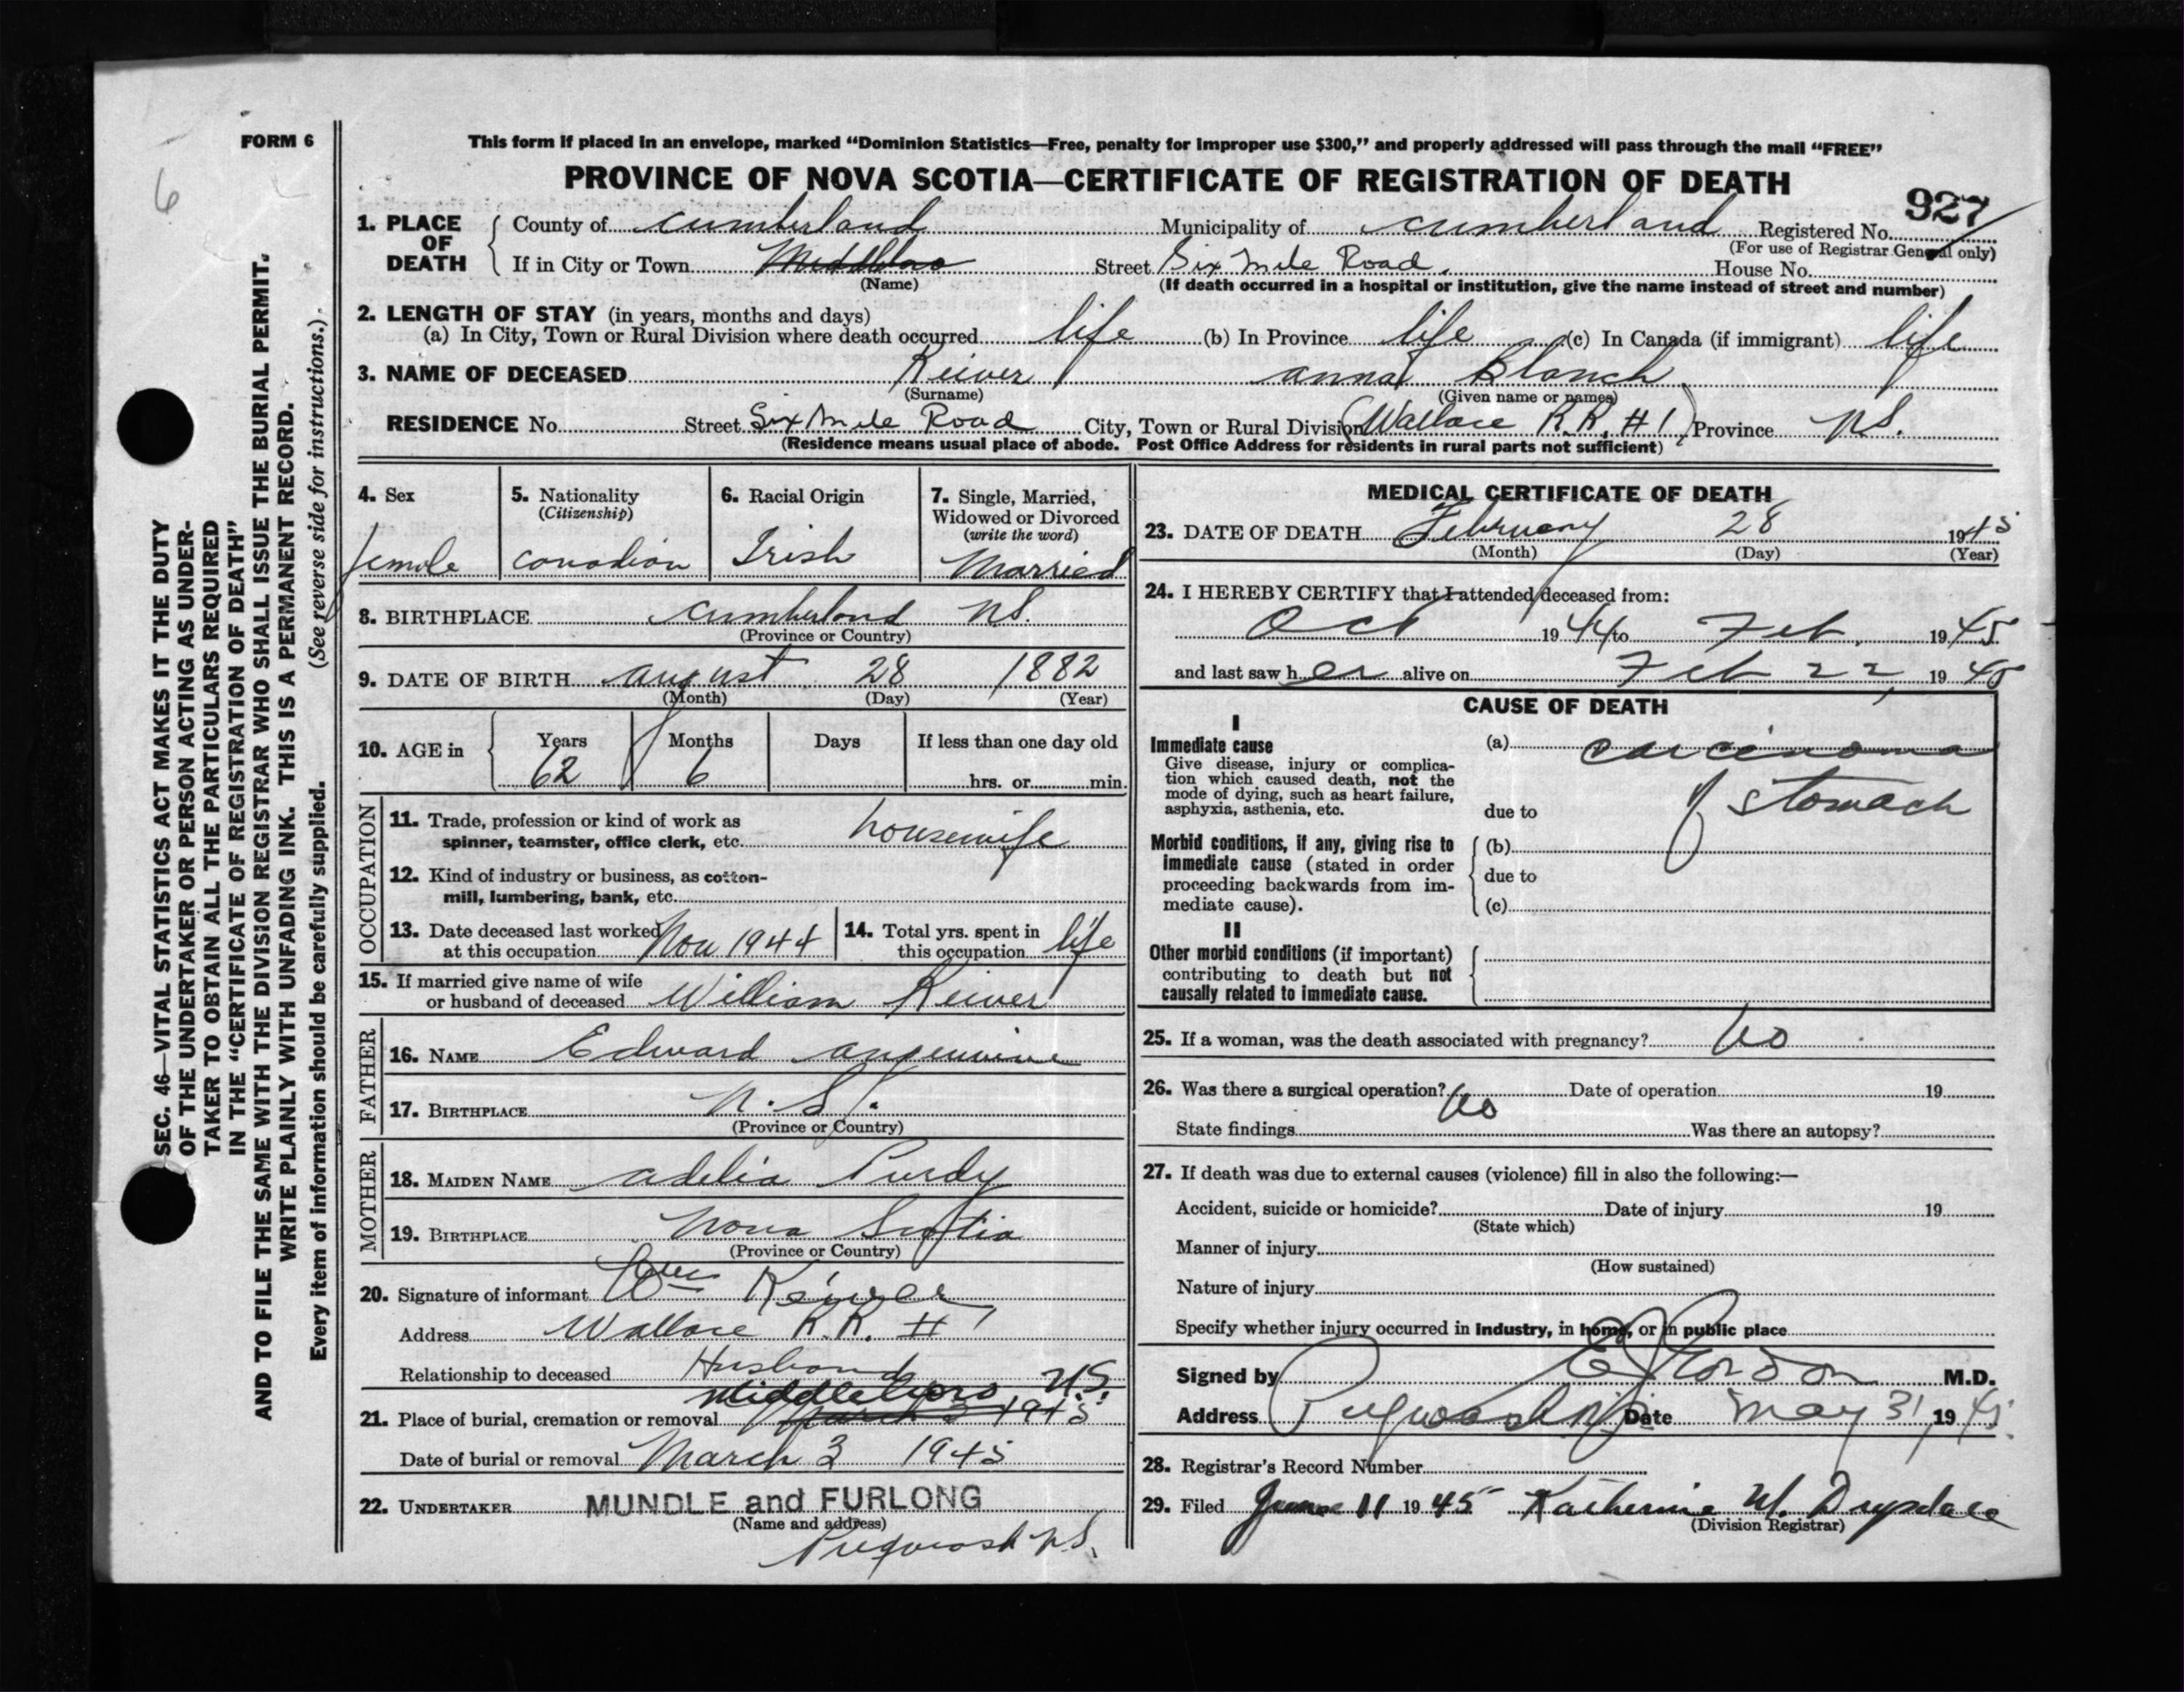 FORM 6
6
This form if placed in an envelope, marked "Dominion Statistics—Free, penalty for improper use $300," and properly addressed will pass through the mail "FREE"
PROVINCE OF NOVA SCOTIA—CERTIFICATE OF REGISTRATION OF DEATH
927
1. PLACE OF DEATH
County of Cumberland Municipality of Cumberland Registered No.
(For use of Registrar General only)
If in City or Town Middleboro Street Six Mile Road. House No.
(Name) (If death occurred in a hospital or institution, give the name instead of street and number)
2. LENGTH OF STAY (in years, months and days)
(a) In City, Town or Rural Division where death occurred life (b) In Province life (c) In Canada (if immigrant) life
3. NAME OF DECEASED Keiver Anna Blanch
(Surname) (Given name or names)
RESIDENCE No. Street Six Mile Road City, Town or Rural Division (Wallace R.R. #1) Province N.S.
(Residence means usual place of abode. Post Office Address for residents in rural parts not sufficient)
4. Sex
female
5. Nationality
(Citizenship)
Canadian
6. Racial Origin
Irish
7. Single, Married,
Widowed or Divorced
(write the word)
Married
8. BIRTHPLACE Cumberland N.S.
(Province or Country)
9. DATE OF BIRTH August 28 1882
(Month) (Day) (Year)
10. AGE in Years Months Days If less than one day old
62 6 hrs. or min.
OCCUPATION
11. Trade, profession or kind of work as
spinner, teamster, office clerk, etc. housewife
12. Kind of industry or business, as cotton-
mill, lumbering, bank, etc.
13. Date deceased last worked
at this occupation Nov 1944
14. Total yrs. spent in
this occupation life
15. If married give name of wife
or husband of deceased William Keiver
FATHER
16. NAME Edward
17. BIRTHPLACE N.S.
(Province or Country)
MOTHER
18. MAIDEN NAME Adelia Purdy
19. BIRTHPLACE Nova Scotia
(Province or Country)
20. Signature of informant Wm Keiver
Address Wallace R.R. #1
Relationship to deceased Husband
Middleboro, N.S.
21. Place of burial, cremation or removal March 3 1945
Date of burial or removal March 3 1945
22. UNDERTAKER MUNDLE and FURLONG
(Name and address)
Pugwash N.S.
MEDICAL CERTIFICATE OF DEATH
23. DATE OF DEATH February 28 1945
(Month) (Day) (Year)
24. I HEREBY CERTIFY that I attended deceased from:
Oct 1944 to Feb. 1945
and last saw her alive on Feb 22, 1945
CAUSE OF DEATH
I
Immediate cause
Give disease, injury or complica-
tion which caused death, not the
mode of dying, such as heart failure,
asphyxia, asthenia, etc.
(a) carcinoma
due to of stomach
Morbid conditions, if any, giving rise to
immediate cause (stated in order
proceeding backwards from im-
mediate cause).
(b)
due to
(c)
II
Other morbid conditions (if important)
contributing to death but not
causally related to immediate cause.
25. If a woman, was the death associated with pregnancy? No
26. Was there a surgical operation? No Date of operation 19
State findings Was there an autopsy?
27. If death was due to external causes (violence) fill in also the following:—
Accident, suicide or homicide? Date of injury 19
(State which)
Manner of injury
(How sustained)
Nature of injury
Specify whether injury occurred in industry, in home, or in public place
Signed by Gordon M.D.
Address Pugwash N.S. Date May 31, 1945
28. Registrar's Record Number
29. Filed June 11 1945 Katherine M. Drysdale
(Division Registrar)
SEC. 46—VITAL STATISTICS ACT MAKES IT THE DUTY
OF THE UNDERTAKER OR PERSON ACTING AS UNDER-
TAKER TO OBTAIN ALL THE PARTICULARS REQUIRED
IN THE "CERTIFICATE OF REGISTRATION OF DEATH"
AND TO FILE THE SAME WITH THE DIVISION REGISTRAR WHO SHALL ISSUE THE BURIAL PERMIT.
WRITE PLAINLY WITH UNFADING INK. THIS IS A PERMANENT RECORD.
Every item of information should be carefully supplied. (See reverse side for instructions.)